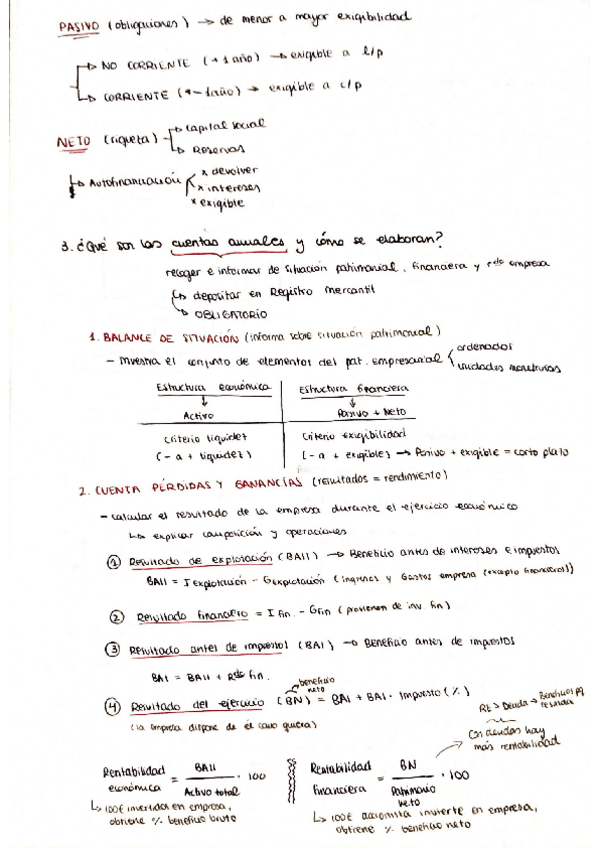 PASIVO (obligaciones) → de menor a mayor exigibilidad
→ NO CORRIENTE (+1 año) → exigible a l/p
→ CORRIENTE (+-1año) → exigible a c/p
NETO (riqueza) → capital social
→ Reservas
→ Autofinanciación
x devolver
x intereses
x exigible
3. ¿Qué son las cuentas anuales y cómo se elaboran?
recoger e informar de situación patrimonial, financiera y rdo empresa
↳ depositar en Registro Mercantil
↳ OBLIGATORIO
1. BALANCE DE SITUACIÓN (informa sobre situación patrimonial)
- Muestra el conjunto de elementos del pat. empresarial
ordenados
unidades monetarias
Estructura económica
↓
Activo
Criterio liquidez
(- a + liquidez)
Estructura financiera
↓
Pasivo + Neto
Criterio exigibilidad
(- a + exigible) → Pasivo + exigible = corto plazo
2. CUENTA PÉRDIDAS Y GANANCIAS (resultados = rendimiento)
- calcular el resultado de la empresa durante el ejercicio económico
↳ explicar composición y operaciones
① Resultado de explotación (BAII) → Beneficio antes de intereses e impuestos
BAII = I explotación - G explotación (ingresos y Gastos empresa (excepto financieros))
② Resultado financiero = I fin. - G fin (provienen de inv fin)
③ Resultado antes de impuestos (BAI) → Beneficio antes de impuestos
BAI = BAII + Rdo fin.
beneficio neto
④ Resultado del ejercicio (BN) = BAI + BAI · Impuesto (%)
(la empresa dispone de él como quiera)
RE > Deuda → Beneficios
Con deudas hay
más rentabilidad
Rentabilidad económica = BAII / Activo total · 100
↳ 100€ invertidos en empresa,
obtiene % beneficio bruto
Rentabilidad financiera = BN / Patrimonio neto · 100
↳ 100€ accionista invierte en empresa,
obtiene % beneficio neto